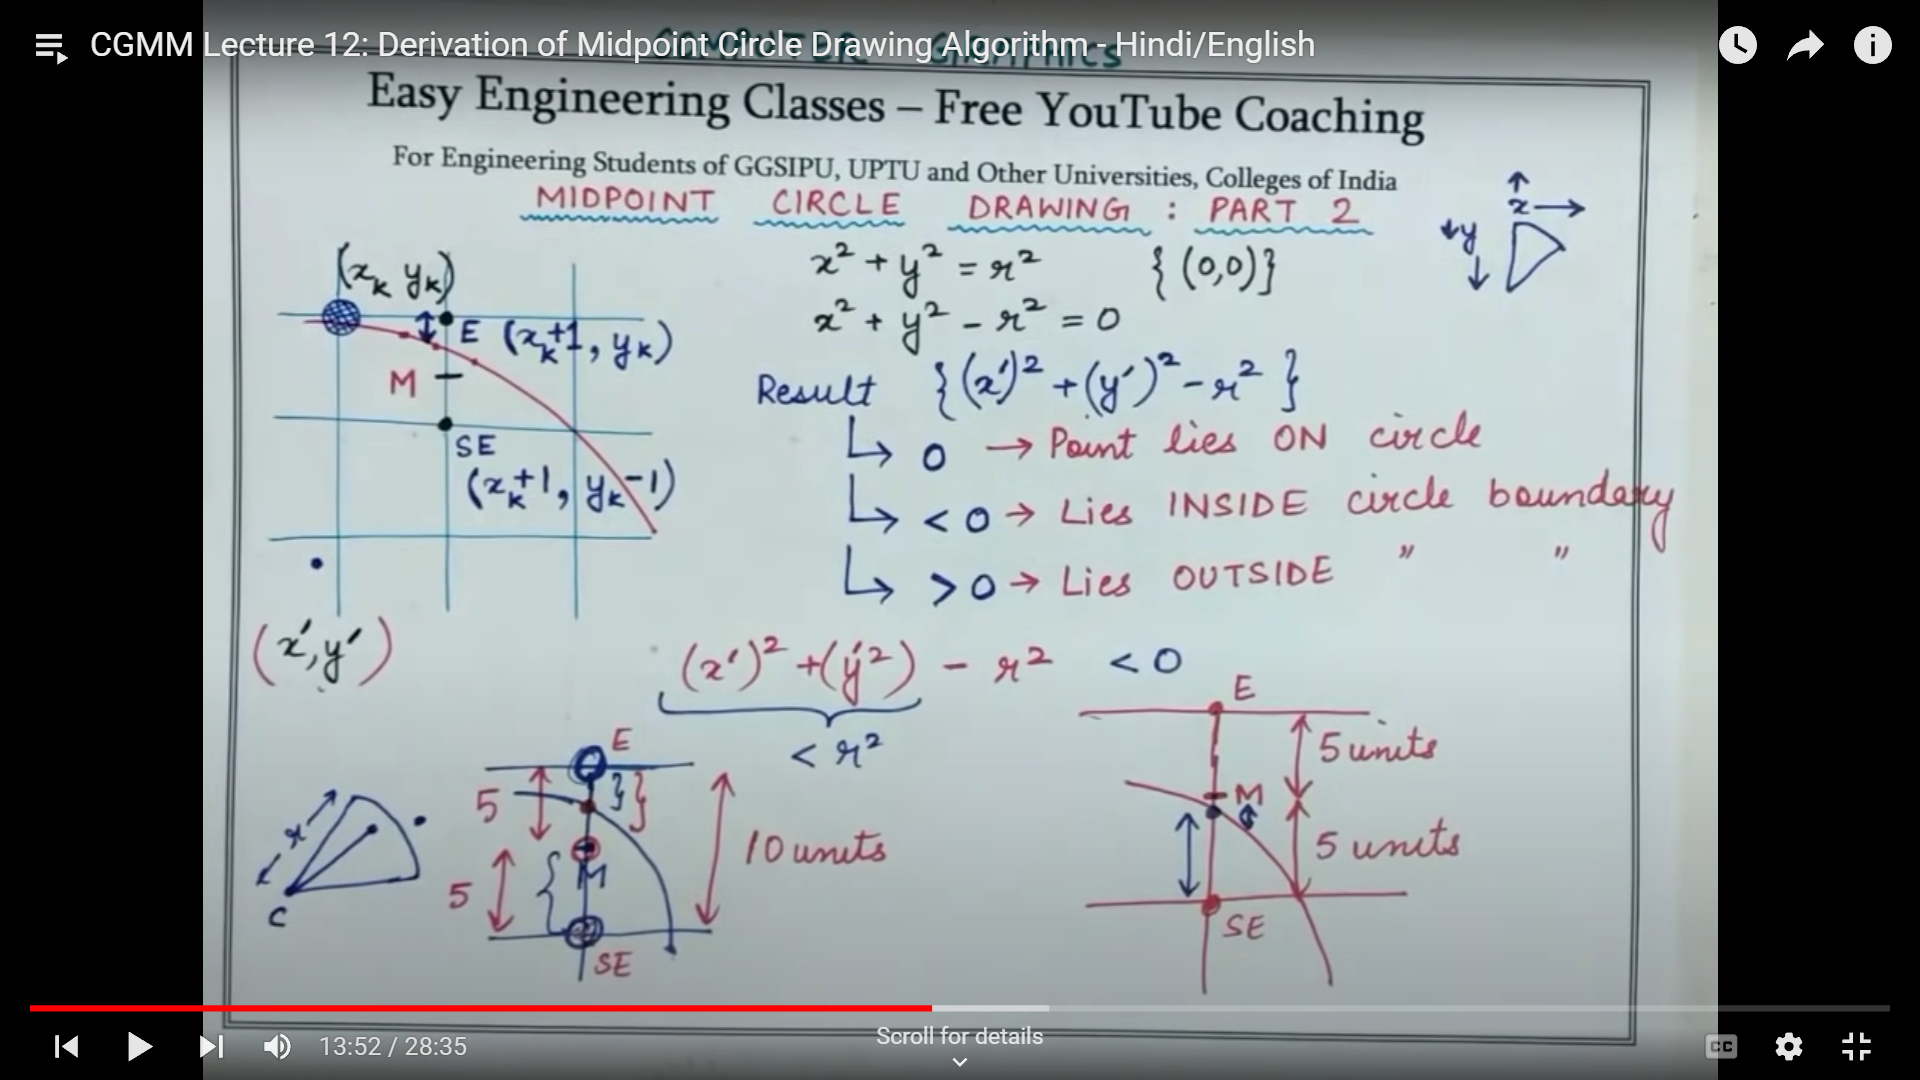 CGMM Lecture 12: Derivation of Midpoint Circle Drawing Algorithm - Hindi/English
Easy Engineering Classes – Free YouTube Coaching
For Engineering Students of GGSIPU, UPTU and Other Universities, Colleges of India
MIDPOINT CIRCLE DRAWING : PART 2
x
y
(xₖ yₖ)
x² + y² = r² {(0,0)}
E (xₖ+1, yₖ)
x² + y² - r² = 0
M
Result {(x′)² + (y′)² - r²}
SE
↳ 0 → Point lies ON circle
(xₖ+1, yₖ-1)
↳ < 0 → Lies INSIDE circle boundary
↳ > 0 → Lies OUTSIDE " "
(x′, y′)
(x′)² + (y′²) - r² < 0
< r²
E
5
5
M
SE
10 units
r
C
E
5 units
M
5 units
SE
13:52 / 28:35
Scroll for details
CC